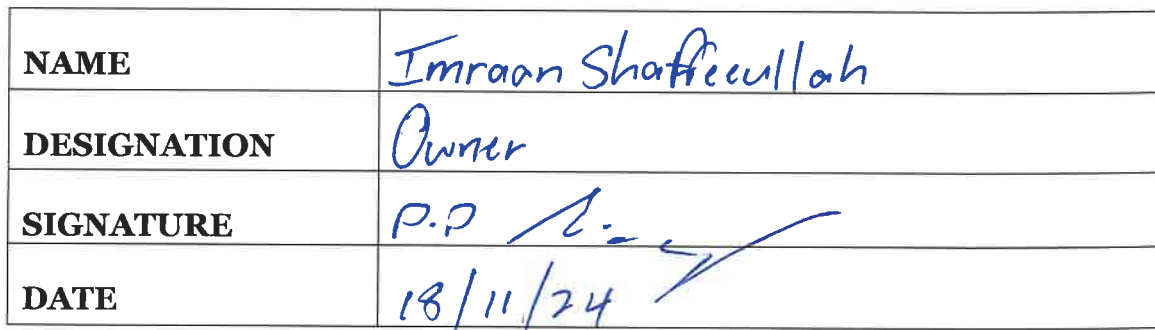 NAME Imraan Shaffeeullah
DESIGNATION Owner
SIGNATURE P.P
DATE 18/11/24